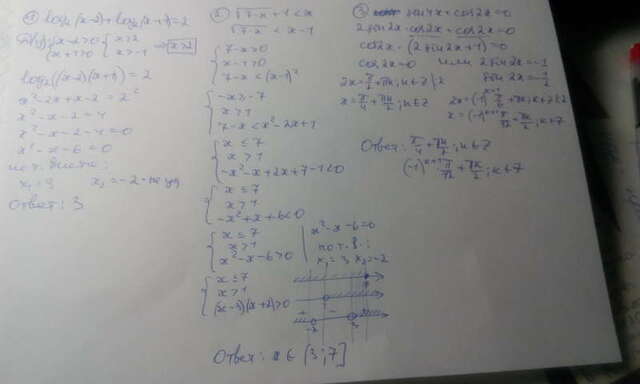 ① log₂(x-2)+log₂(x+1)=2
{x-2>0 {x>2
{x+1>0 {x>-1 ⇒ x>2
log₂((x-2)(x+1))=2
x²-2x+x-2=2²
x²-x-2=4
x²-x-2-4=0
x²-x-6=0
по т. Виета:
x₁=3 x₂=-2 - не уд
Ответ: 3
② √7-x +1<x
√7-x < x-1
{7-x≥0
{x-1>0
{7-x<(x-1)²
{-x≥-7
{x>1
{7-x<x²-2x+1
{x≤7
{x>1
{-x²-x+2x+7-1<0
{x≤7
{x>1
{-x²+x+6<0
{x≤7
{x>1
{x²-x-6>0
x²-x-6=0
по т. В.:
x₁=3 x₂=-2
{x≤7
{x>1
{(x-3)(x+2)>0
+ -
-2 3
Ответ: x∈(3;7]
③ sin4x+cos2x=0
2sin2x·cos2x+cos2x=0
cos2x·(2sin2x+1)=0
cos2x=0 или 2sin2x=-1
2x=π/2+πk, k∈Z |:2 sin2x=-1/2
x=π/4+πk/2; k∈Z 2x=(-1)ᵏ⁺¹ π/6+πk, k∈Z |:2
x=(-1)ᵏ⁺¹ π/12+πk/2, k∈Z
Ответ: π/4+πk/2; k∈Z
(-1)ᵏ⁺¹ π/12+πk/2; k∈Z